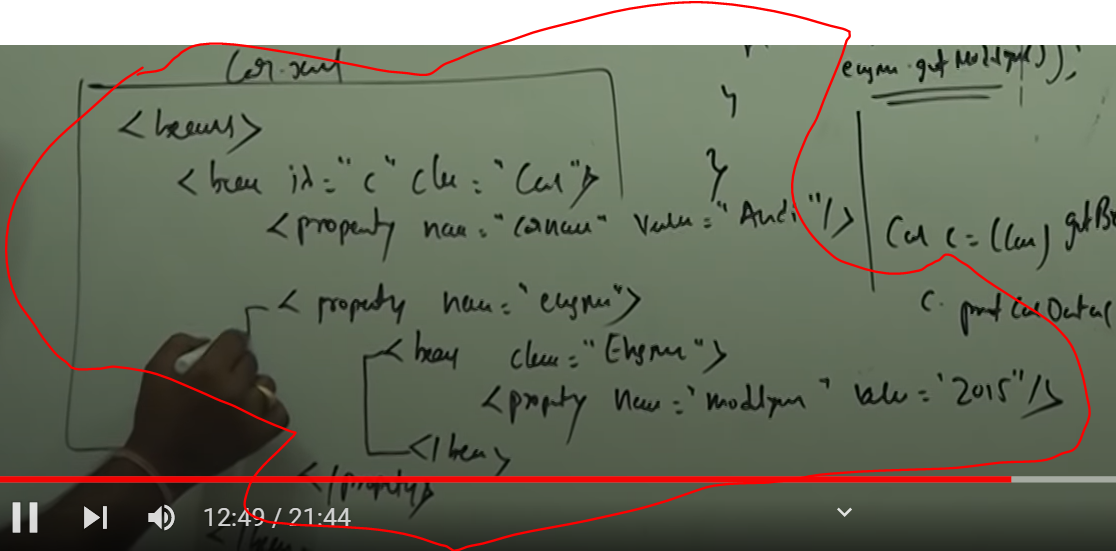 Car.xml
<beans>
<bean id="c" class="Car">
<property name="carname" value="Audi"/>
<property name="engine">
<bean class="Engine">
<property name="modelyear" value="2015"/>
</bean>
</property>
engine.getModelyear());
}
}
Car c = (Car) getB
c. printCarData(
12:49 / 21:44